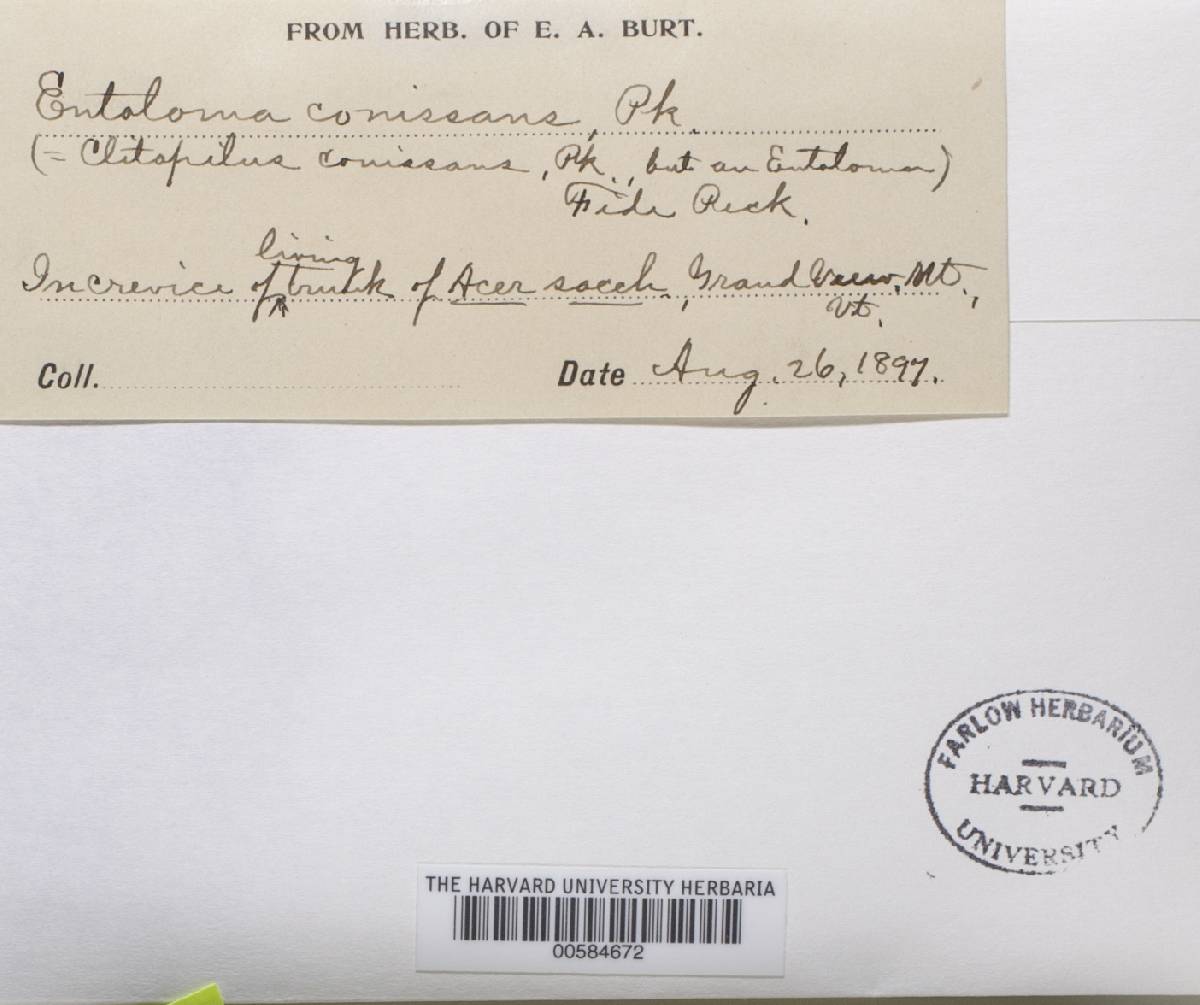 FROM HERB. OF E. A. BURT.
Entoloma conissans, Pk.
(= Clitopilus conissans, Pk., but an Entoloma)
Fide Peck.
In crevice of living trunk of Acer sacch., Grand View, Mt.,
Vt.
Coll. Date Aug. 26, 1897.
FARLOW HERBARIUM
HARVARD
UNIVERSITY
THE HARVARD UNIVERSITY HERBARIA
00584672